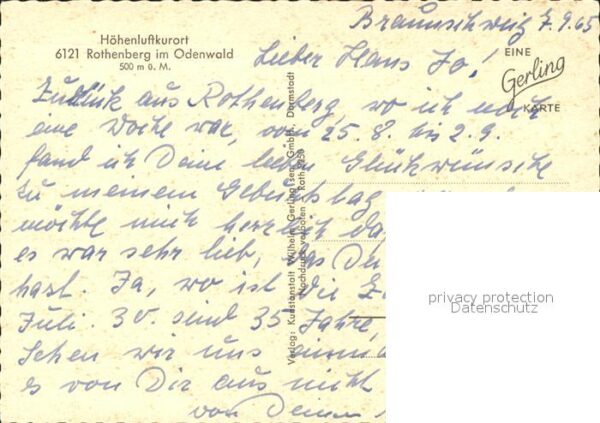 Braunschweig 7.9.65
Höhenluftkurort
6121 Rothenberg im Odenwald
500 m ü. M.
Lieber Hans Jo!
EINE
Gerling
KARTE
Zurück aus Rothenberg, wo ich noch
eine Woche war, vom 25.8. bis 2.9.
fand ich Deine lieben Glückwünsche
zu meinem Geburtstag
möchte mich herzlich
es war sehr lieb, das Du
hast. Ja, wo ist die
Juli. 30. sind 35 Jahre,
Sehen wir uns
es von Dir aus nicht
von Deinen
Verlag: Kunstanstalt Wilhelm Gerling sen. GmbH., Darmstadt
Nachdruck verboten Roth
privacy protection
Datenschutz